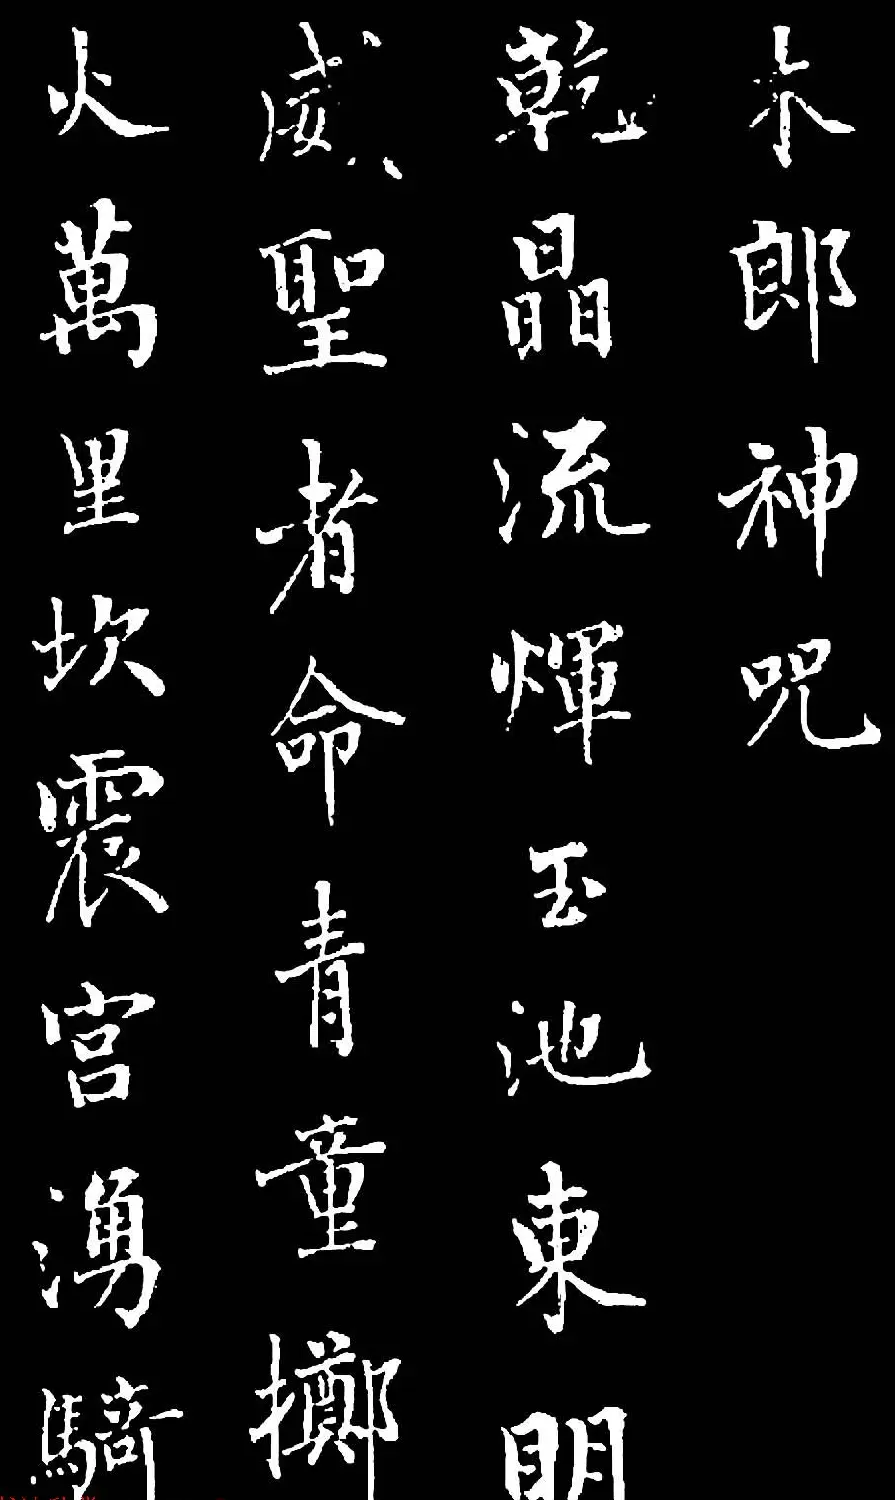 木郎神咒
乾晶流煇玉池東明
威聖者命青童擲
火萬里坎震宮湧騎